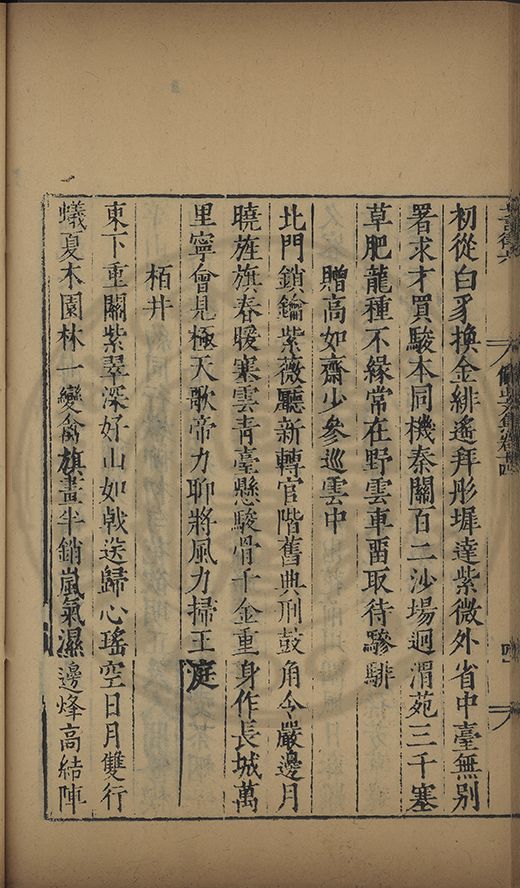 初從白豸換金緋遙拜彤墀達紫微外省中臺無別
署求才買駿本同機秦關百二沙場迥渭苑三千塞
草肥龍種不緣常在野雲車畱取待驂騑
贈高如齋少參巡雲中
北門鎖鑰紫薇廳新轉官階舊典刑鼓角今嚴邊月
曉旌旗春暖塞雲青臺懸駿骨千金重身作長城萬
里寧會見極天歌帝力聊將風力掃王庭
栢井
東下重關紫翠深好山如戟送歸心瑤空日月雙行
蟻夏木園林一變禽旗畫半銷嵐氣濕邊烽高結陣